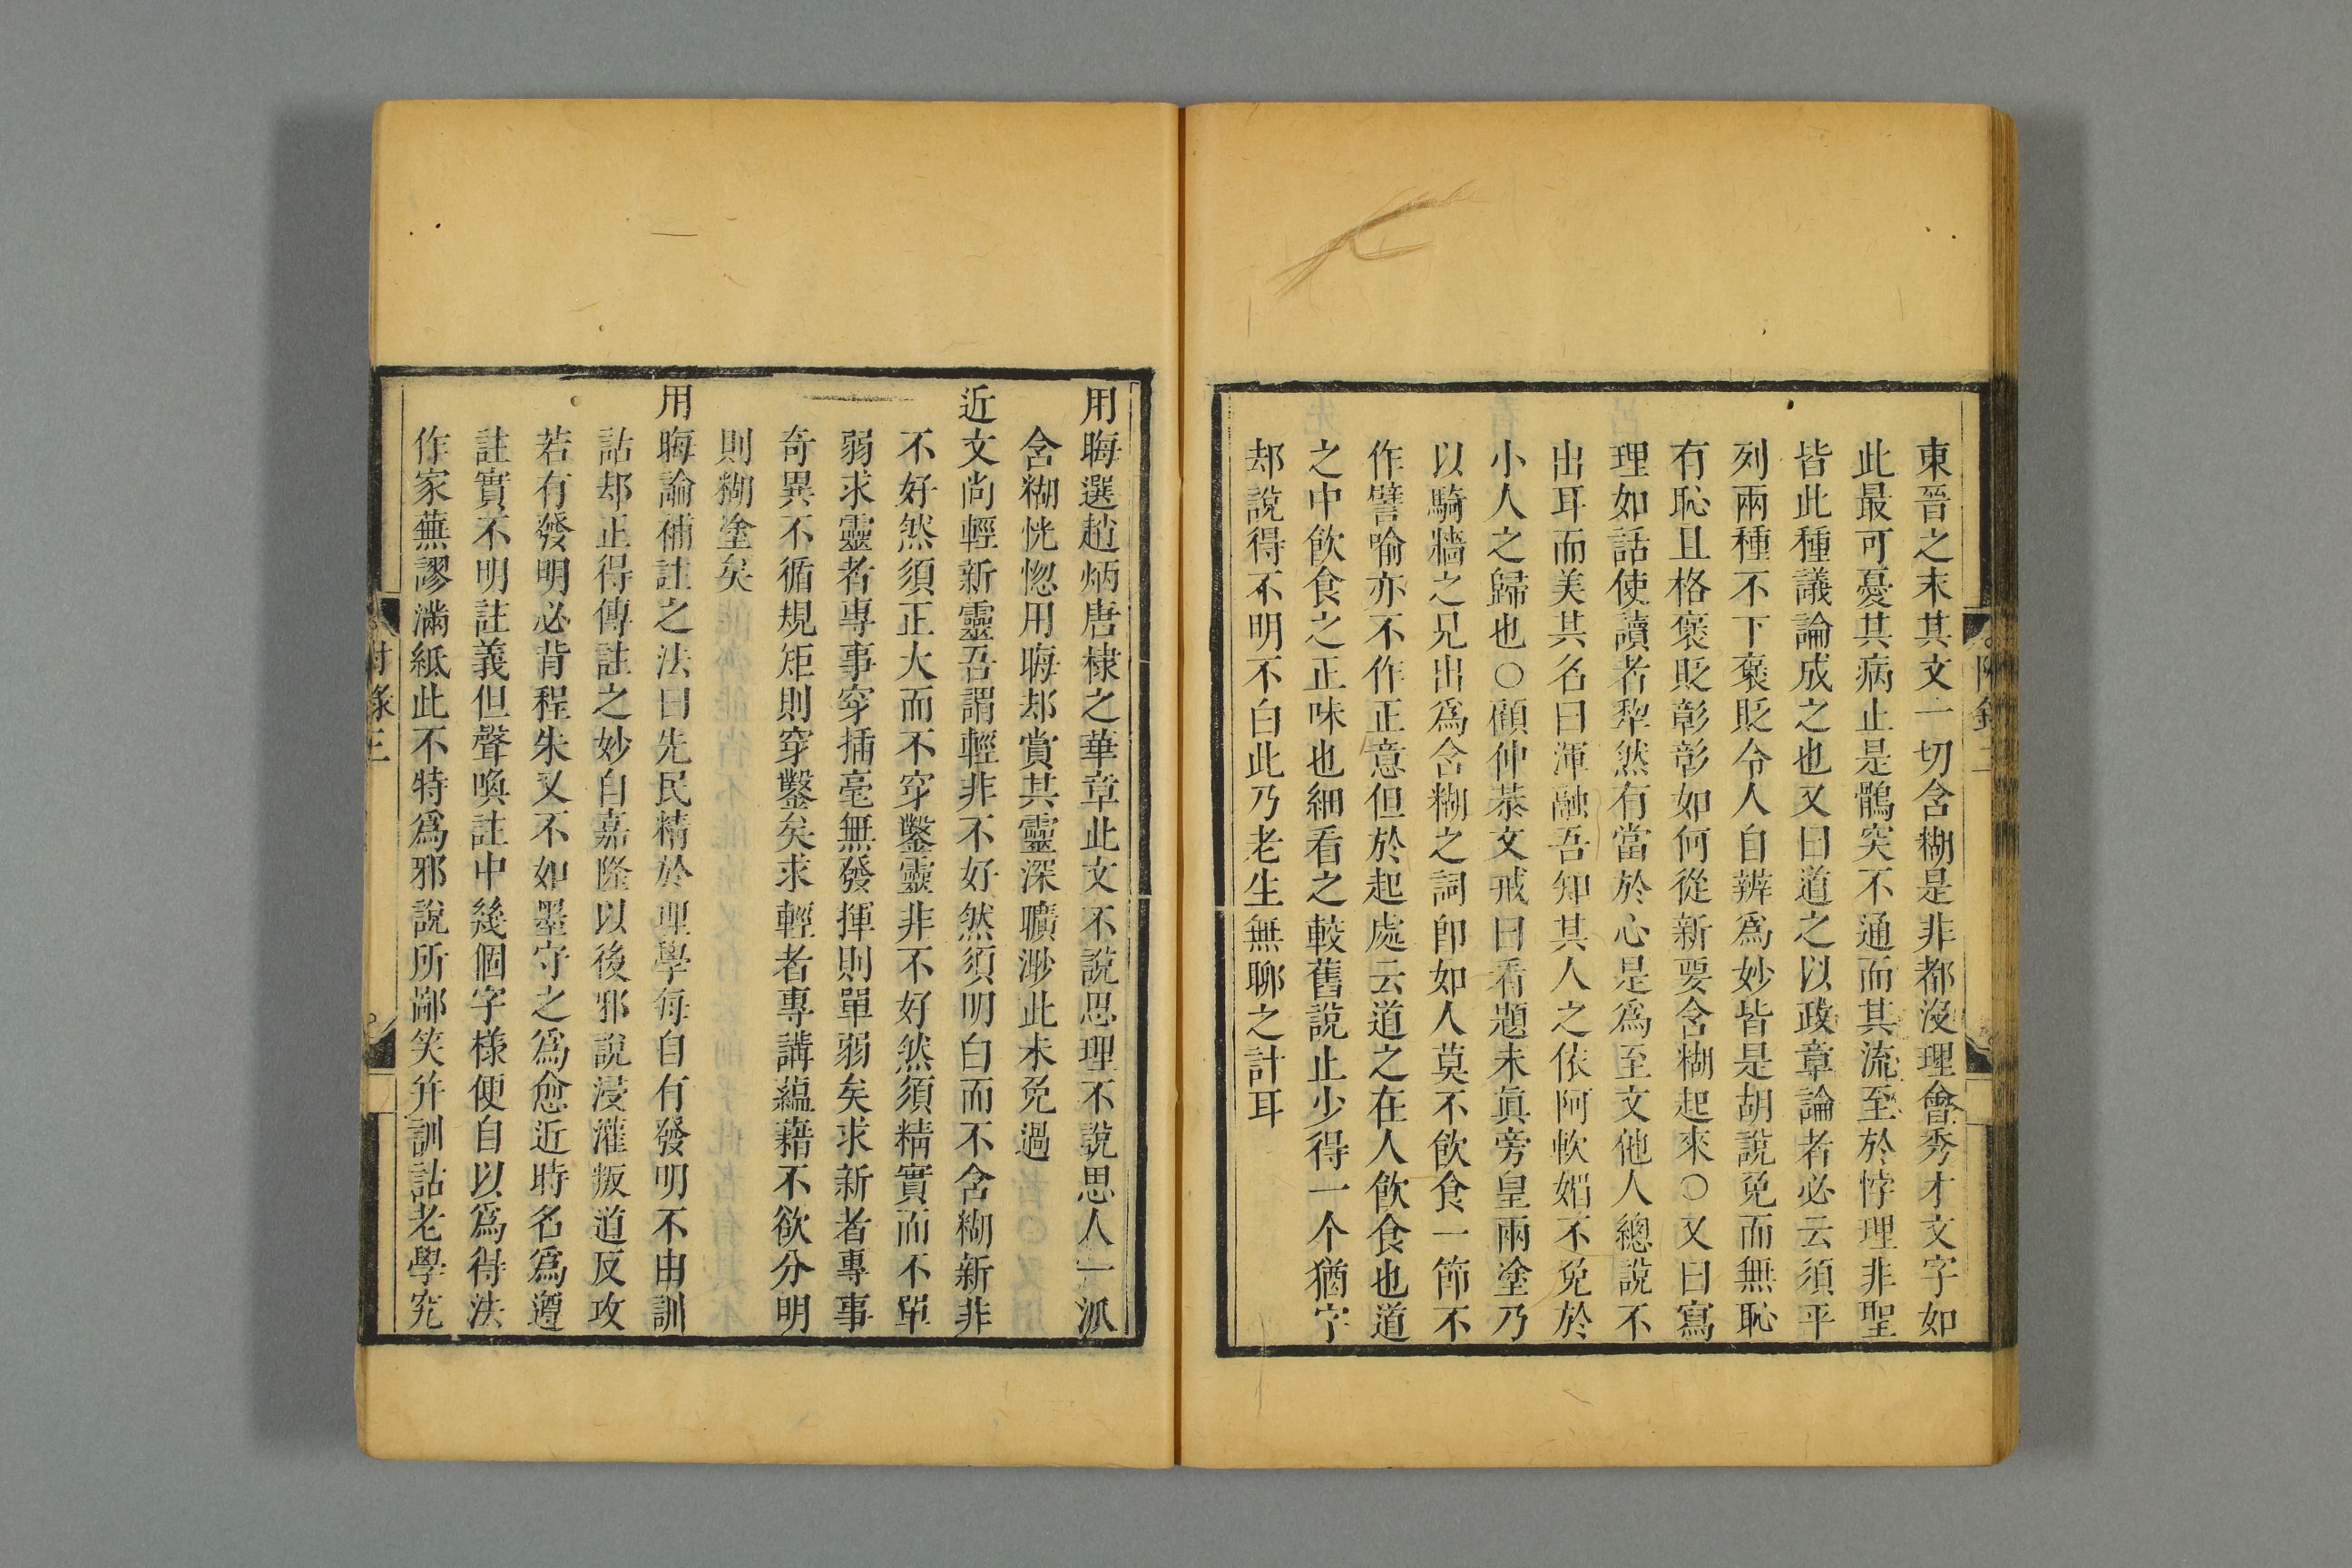 東晉之末其文一切含糊是非都沒理會秀才文字如
此最可憂其病止是鶻突不通而其流至於悖理非聖
皆此種議論成之也又曰道之以政章論者必云須平
列兩種不下褒貶令人自辨爲妙皆是胡說免而無恥
有恥且格褒貶彰彰如何從新要含糊起來○又曰寫
理如話使讀者犂然有當於心是爲至文他人總說不
出耳而美其名曰渾融吾知其人之依阿軟媚不免於
小人之歸也○顧仲恭文戒曰看題未眞旁皇兩塗乃
以騎牆之見出爲含糊之詞卽如人莫不飲食一節不
作譬喻亦不作正意但於起處云道之在人飲食也道
之中飲食之正味也細看之較舊說止少得一个猶字
却說得不明不白此乃老生無聊之計耳
用晦選趙炳唐棣之華章此文不說思理不說思人一派
含糊恍惚用晦却賞其靈深曠渺此未免過
近文尚輕新靈吾謂輕非不好然須明白而不含糊新非
不好然須正大而不穿鑿靈非不好然須精實而不單
弱求靈者專事穿插毫無發揮則單弱矣求新者專事
奇異不循規矩則穿鑿矣求輕者專講蘊藉不欲分明
則糊塗矣
用晦論補註之法曰先民精於理學每自有發明不由訓
詁却正得傳註之妙自嘉隆以後邪說浸灌叛道反攻
若有發明必背程朱又不如墨守之爲愈近時名爲遵
註實不明註義但聲喚註中幾個字樣便自以爲得法
作家蕪謬滿紙此不特爲邪說所鄙笑并訓詁老學究
附錄三